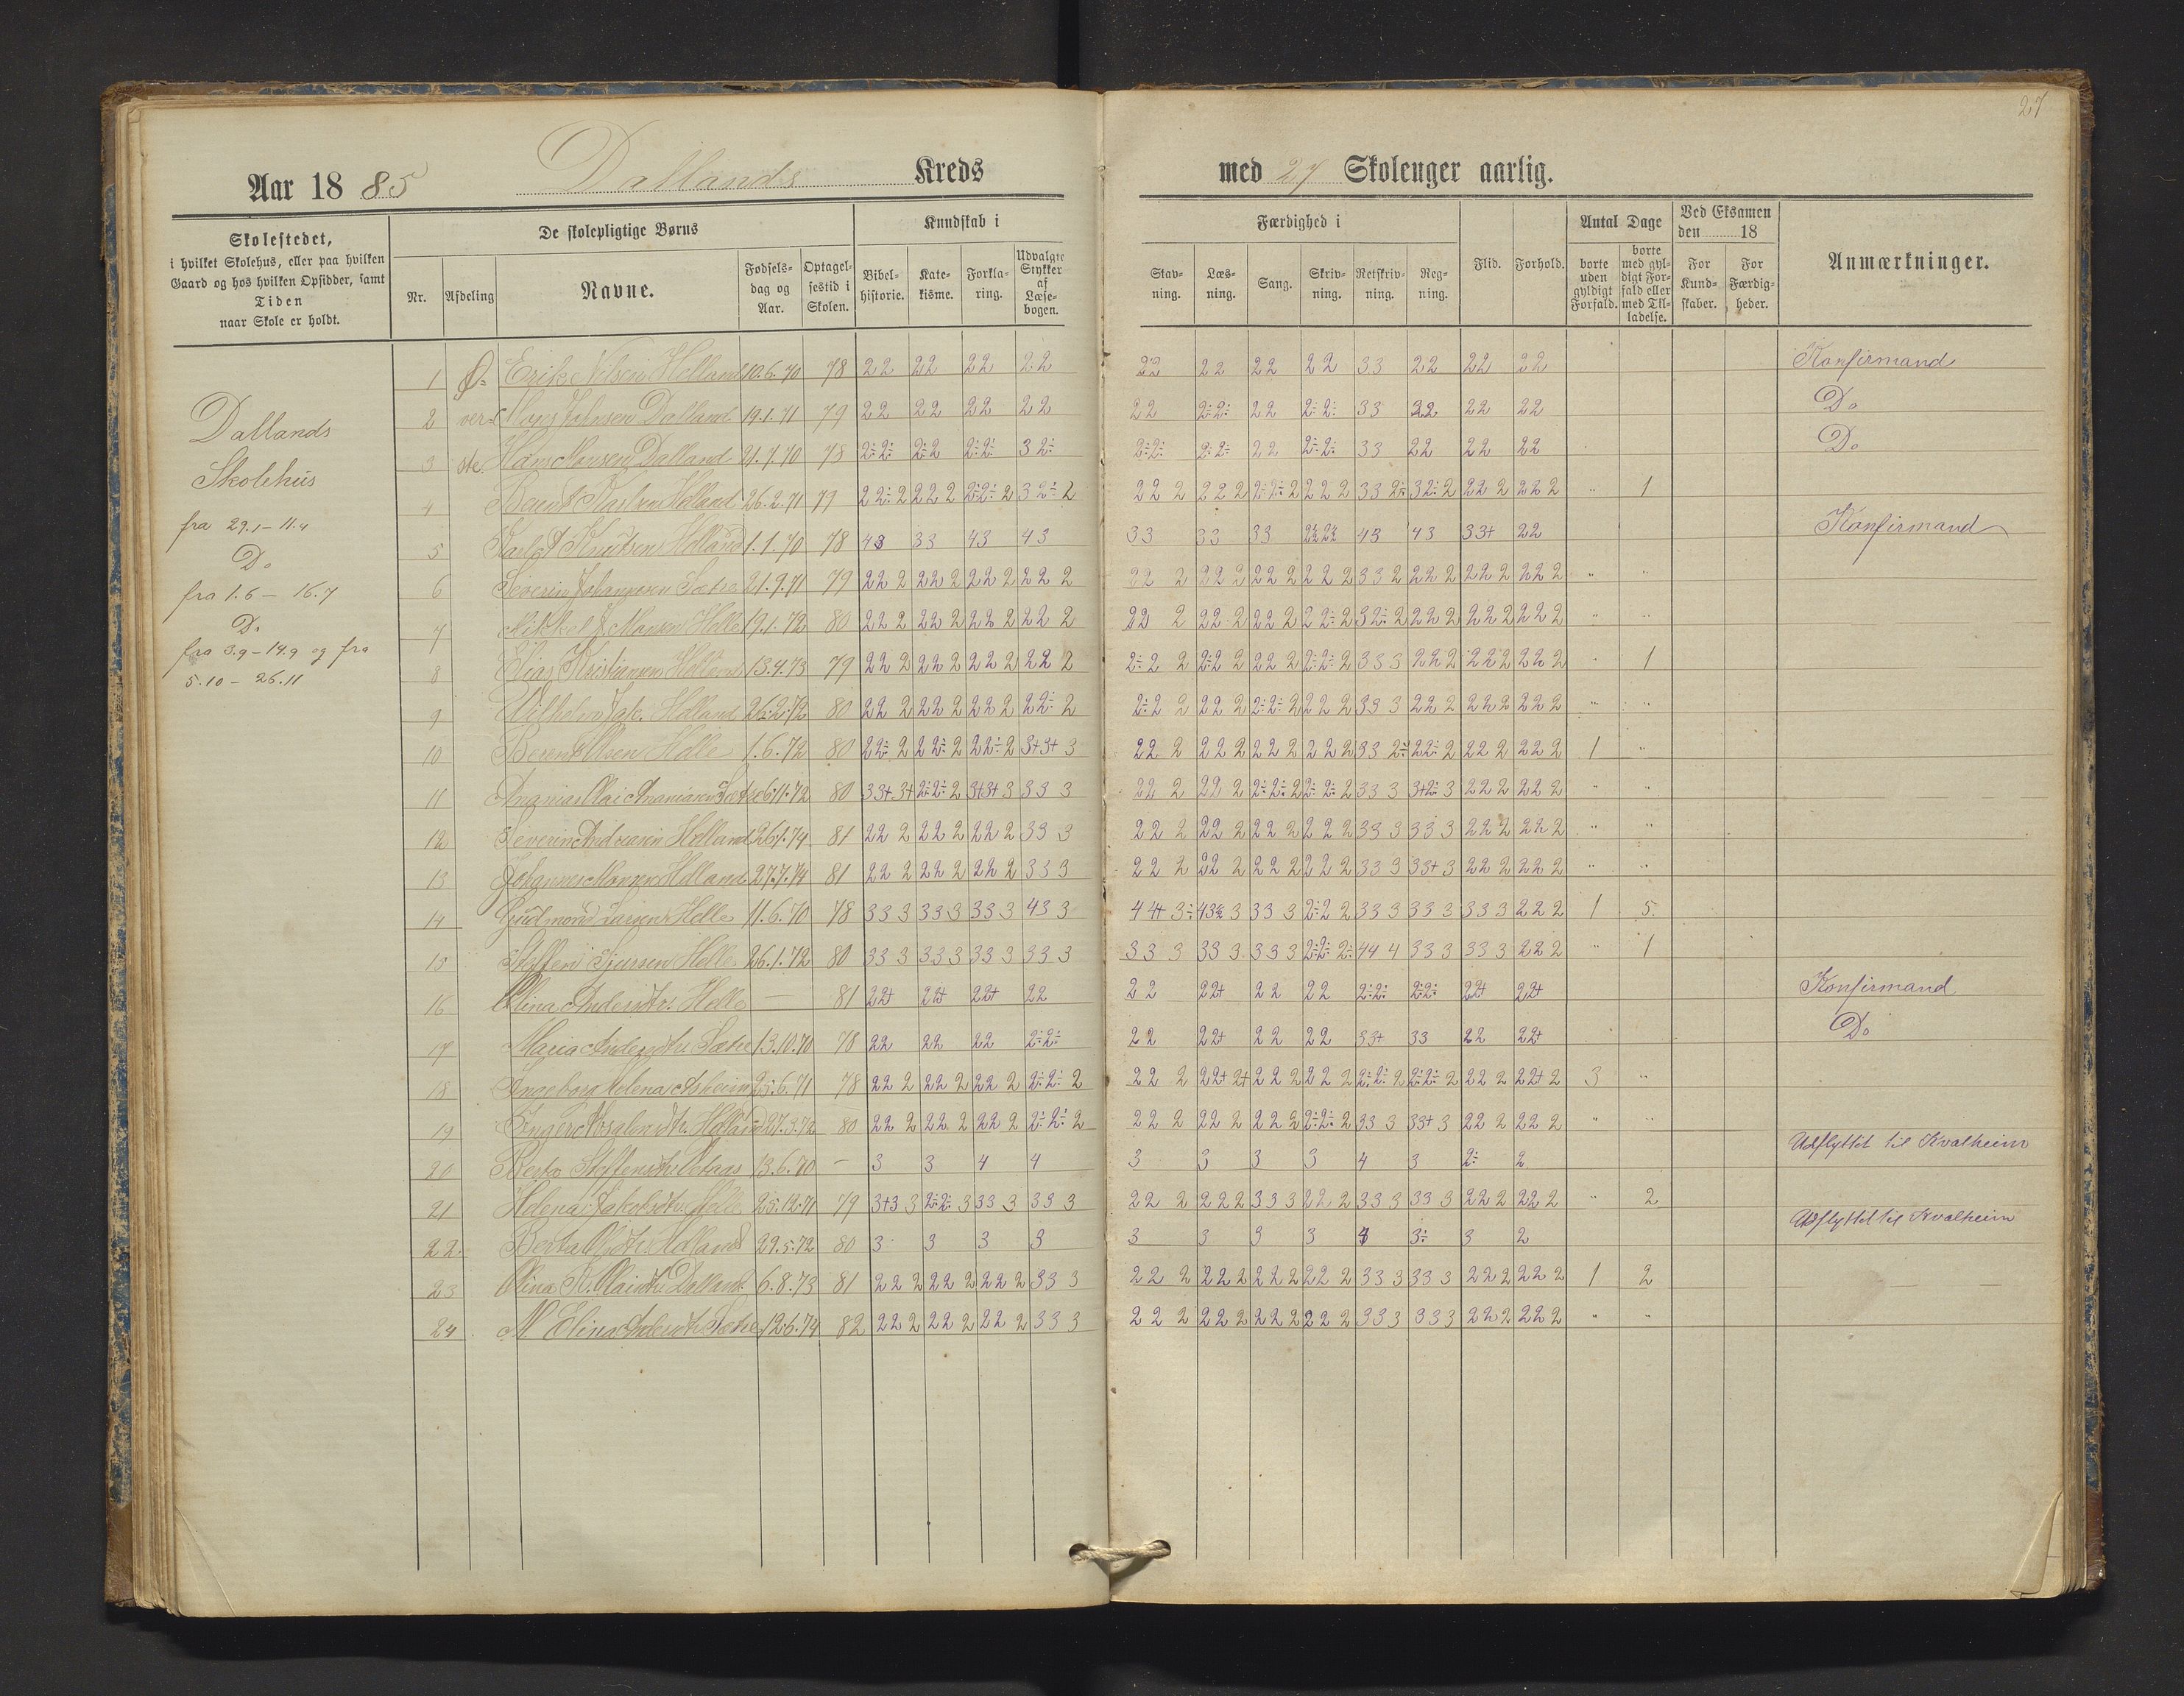 27
Aar 1885 Dallands Kreds med 27 Skoleuger aarlig.
Skolestedet, i hvilket Skolehus, eller paa hvilken Gaard og hos hvilken Opsidder, samt Tiden naar Skole er holdt.
De skolepligtige Børns
Nr. Afdeling Navne. Fødselsdag og Aar. Optagelsestid i Skolen.
Kundskab i
Bibelhistorie. Katekisme. Forklaring. Udvalgte Stykker af Læsebogen.
Færdighed i
Stavning. Læsning. Sang. Skrivning. Retskrivning. Regning.
Flid. Forhold.
Antal Dage
borte uden gyldigt Forfald. borte med gyldigt Forfald eller med Tilladelse.
Ved Eksamen den 18
For Kundskaber. For Færdigheder.
Anmærkninger.
Dallands
Skolehus
fra 29.1 – 11.4
Do
fra 1.6 – 16.7
Do
fra 3.9 – 14.9 og fra
5.10 – 26.11
1 Ø- Erik Nilsen Helland 10.6.70 78 22 22 22 22 22 22 22 22 33 22 22 22 Konfirmand
2 ver- Mons Johnsen Dalland 19.1.71 79 22 22 22 22 22 2÷2÷ 22 2÷2÷ 33 22 22 22 Do
3 ste Hans Monsen Dalland 21.7.70 78 2÷2÷ 2÷2 2÷2÷ 3 2÷ 2÷2÷ 2÷2÷ 22 2÷2÷ 33 22 22 22 Do
4 Helland 26.2.71 79 22÷2 222 2÷2÷2 32÷2 222 222 2÷2÷2 222 332÷ 32÷2 222 222 " 1
5 Knutsen Helland 1.1.70 78 43 33 43 43 33 33 33 43 43 33+ 22 Konfirmand
6 Severin Johannesen Sætre 21.9.71 79 222 222 222 222 222 222 222 222 332 222 222 222 " "
7 Mikkel Monsen Helle 19.1.72 80 222 222 222 222 222 222 222 22÷2 32÷2 222 222 222 " "
8 Elias Kristiansen Helland 13.4.73 79 222 222 222 222 2÷22 2÷22 222 2÷2÷2 333 222 222 222 " 1
9 Vilhelm Jak. Helland 26.2.72 80 222 222 222 22÷2 2÷22 222 2÷2÷2 222 333 222 222 222 " "
10 Berent Olsen Helle 1.6.72 80 22÷2 22÷2 22÷2 3+3+3 222 222 222 222 332÷ 22÷2 222 222 1 "
11 Ananias Olai Ananiasen Sætre 6.11.72 80 33+3+ 2÷2÷2 3+3+3 333 222 222 2÷2÷2 2÷2÷2 333 3+2÷3 222 222 " "
12 Severin Andreasen Helland 26.1.74 81 222 222 222 333 222 222 222 222 333 333 222 222 " "
13 Johannes Monsen Helland 27.7.74 81 222 222 222 333 222 222 222 222 333 33+3 222 222 " "
14 Gudmond Larsen Helle 11.6.70 78 333 333 333 433 44+3÷ 333 2÷22 333 333 333 222 1 5
15 Steffen Sjursen Helle 26.1.72 80 333 333 333 333 333 333 333 2÷2÷2÷ 444 333 333 222 " 1
16 Olina Andersdtr. Helle – 81 22+ 22+ 22+ 22 22 22+ 22 22 2÷2÷ 2÷2÷ 22+ 22+ Konfirmand
17 Maria Andersdtr Sætre 13.10.70 78 22 22 22 2÷2÷ 22 22+ 22 22 33+ 33 22 22+ Do
18 Ingeborg Helena Asheim 25.6.71 78 222 222 222 2÷2÷2 222 22+2+ 222 222 2÷2÷2 2÷2÷2 222 22+2 3 "
19 Helland 27.3.72 80 222 222 222 2÷2÷2 222 222 222 2÷2÷2 333 33+3 222 222 " "
20 Berta Steffensdtr 13.6.70 – 3 3 4 4 3 3 3 3 4 3 2÷ 2 Udflyttet til Kvalheim
21 Helena Jakobsdtr. Helle 25.12.71 79 3+33 2÷2÷3 333 333 222 222 333 222 333 333 222 222 " 2
22. Berta Olsdtr. Helland 29.5.72 80 3 3 3 3 3 3 3 3 3÷ 3 2 Udflyttet til Kvalheim
23 Olina K. Olaisdtr. Dalland 6.8.73 81 222 222 222 333 222 222 222 222 333 333 222 222 1 2
24 M Elina Andersdtr Sætre 12.6.74 82 222 222 222 333 222 222 222 222 333 333 222 222 " "